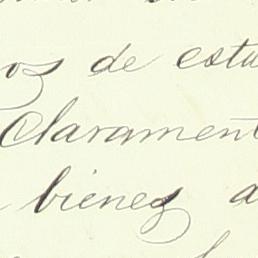 os de estu
Clarament
bienes a